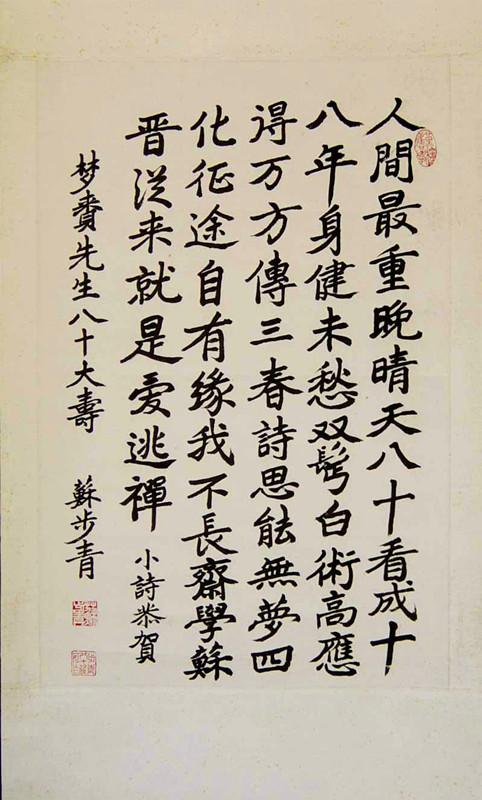 人間最重晚晴天八十看成十
八年身健未愁双髩白術高應
得万方傳三春詩思能無夢四
化征途自有緣我不長齋學蘇
晋従来就是爱逃禪 小詩恭賀
梦賚先生八十大壽 蘇步青